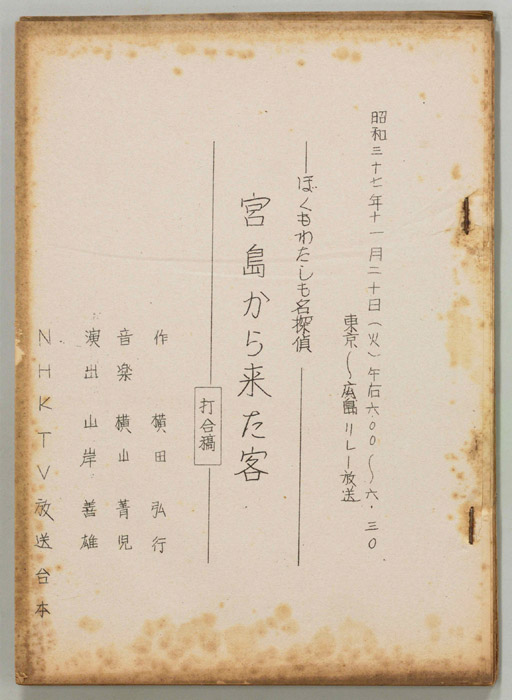 昭和三十七年十一月二十日(火)午后六・〇〇〜六・三〇
東京〜広島リレー放送
―ぼくもわたしも名探偵―
宮島から来た客
打合稿
作 横田弘行
音楽 横山菁児
演出 山岸善雄
NHKTV放送台本